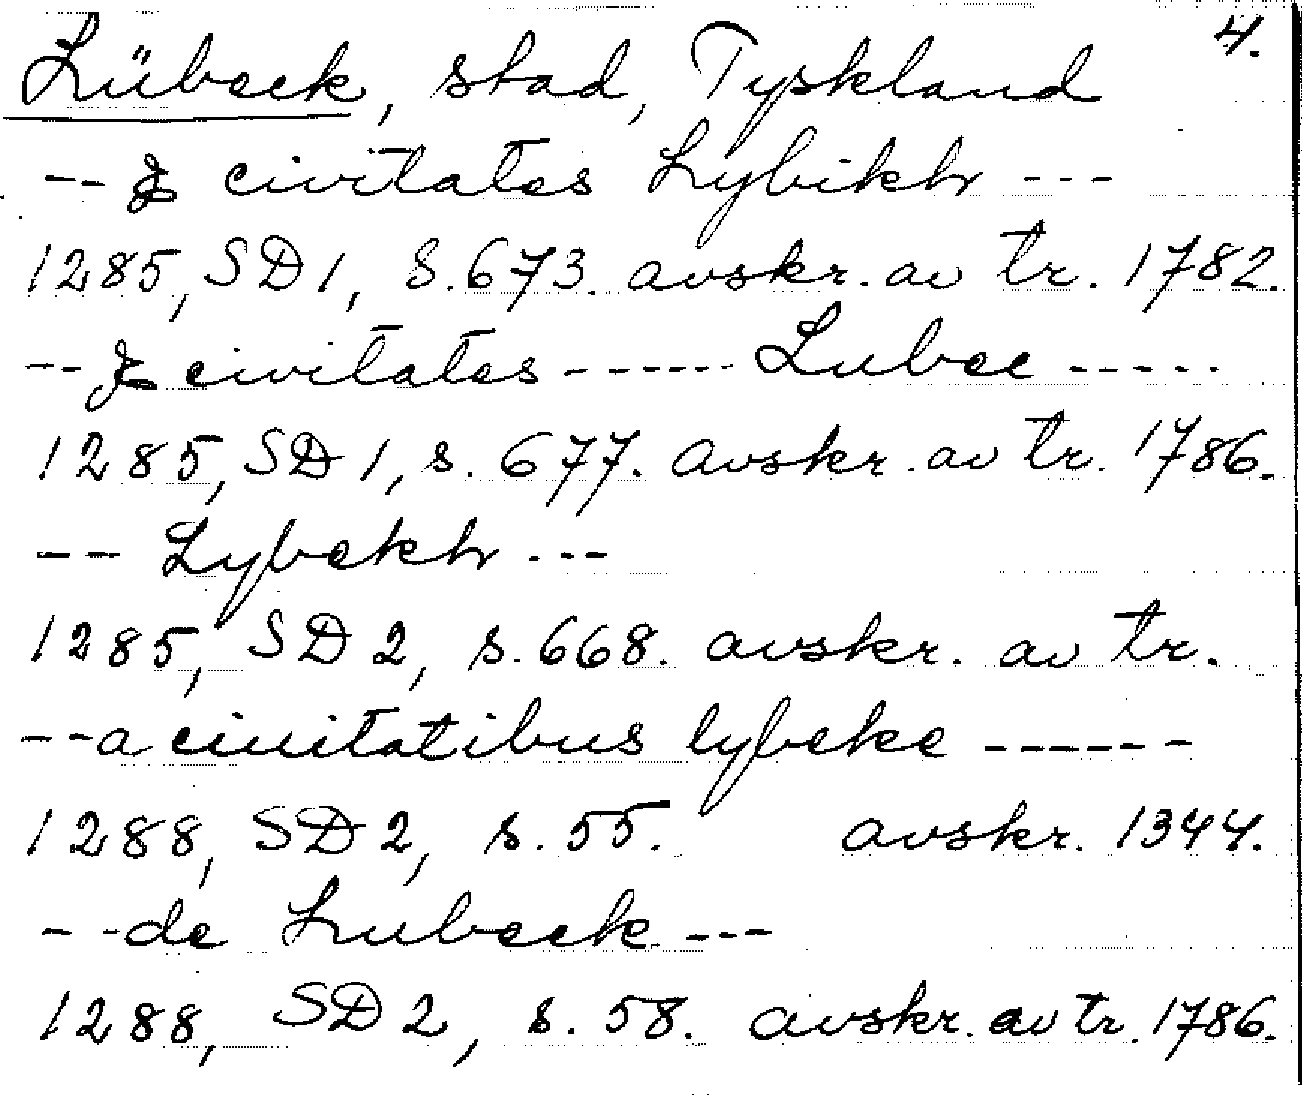 Lübeck, stad, Tyskland 4.
-- civitates Lybikh ---
1285, SD1, S.673. avskr. av tr. 1782.
-- civitates ------ Lubec -----
1285, SD1, s. 677. avskr. av tr. 1786.
-- Lybekh ---
1285, SD 2, s. 668. avskr. av tr.
--a ciuitatibus lybeke ------
1288, SD 2, s. 55. avskr. 1344.
--de Lubeck ---
1288, SD 2, s. 58. avskr. av tr. 1786.